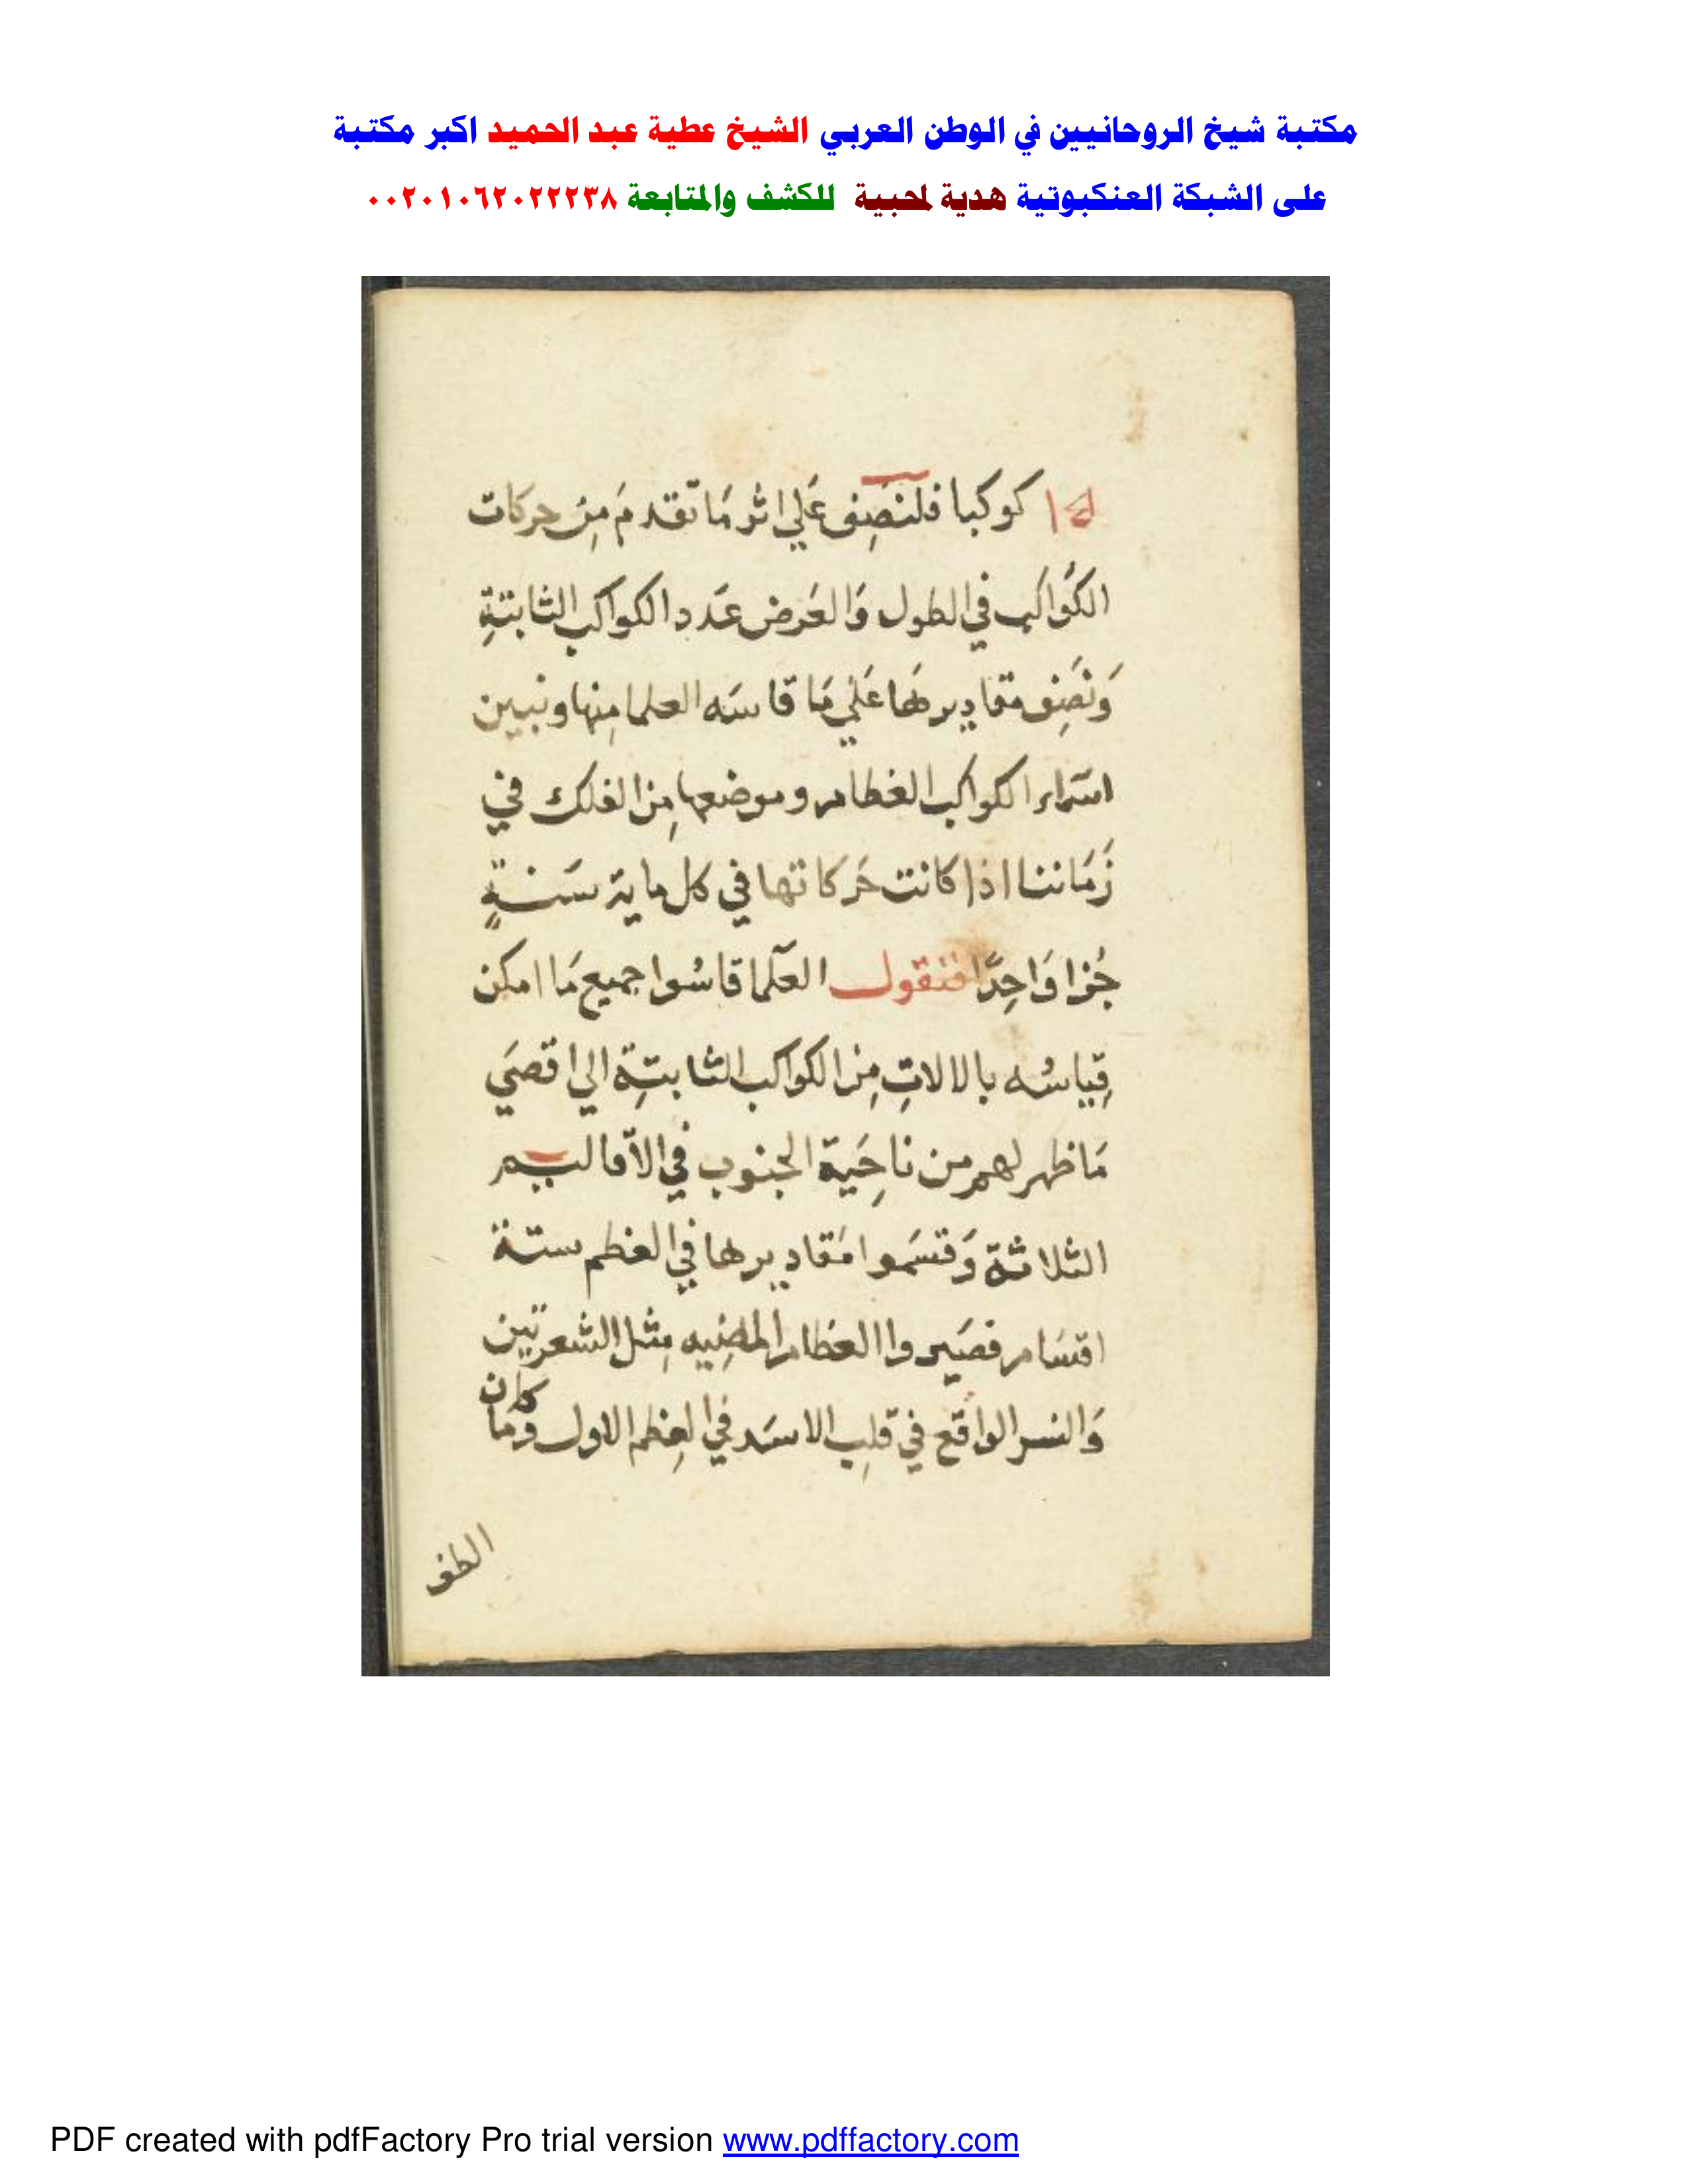 مكتبة شيخ الروحانيين في الوطن العربي الشيخ عطية عبد الحميد اكبر مكتبة
على الشبكة العنكبوتية هدية لمحبية للكشف والمتابعة ٠٠٢٠١٠٦٢٠٢٢٢٣٨
كوكبا فلنصِف عَلي اثر مَا تقدمَ مِن حركات
الكَواكب في الطول وَالعَرض عَدد الكواكب الثابتةِ
وَنصَِف مقاديرهَا عَلي مَا قاسَه العلما مِنها ونبين
اسمَاء الكواكب العظام وموضعها مِن الفلك في
زَمَاننا اذا كانت حَركاتها في كل ماية سَنةٍ
جُزا وَاحِدًا فنقول العلما قاسُوا جميع مَا امكن
قِياسُه بالالاتِ مِن الكواكب الثابتةِ الي اقصَي
مَا ظهر لهم من ناحِيَة الجنوب في الاقاليم
الثلاثة وَقسَموا مَقاديرها في العظم ستة
اقسَام فصَيروا العظام المضِيه مِثل الشعرتين
وَالنسر الواقع في قلبِ الاسَد في العِظم الاول وَمَا كان
الطف
PDF created with pdfFactory Pro trial version www.pdffactory.com